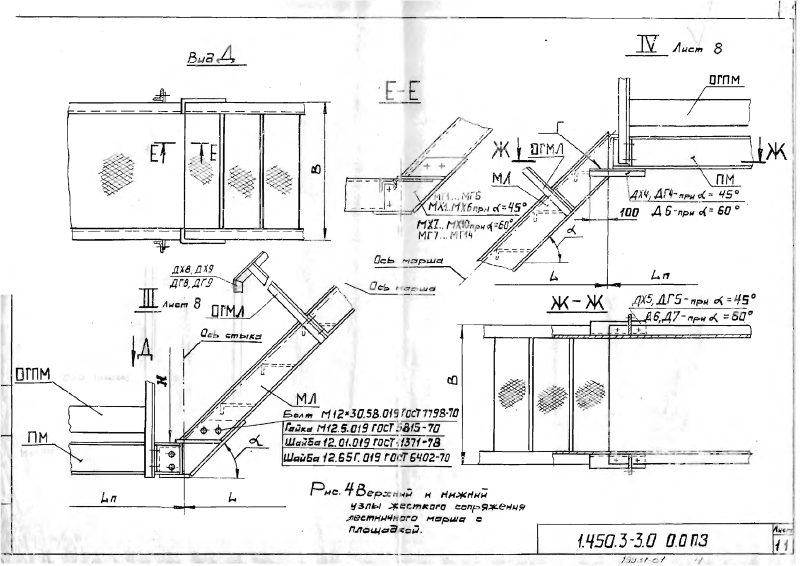 Вид Д
Е
Е
В
Е-Е
МГ1...МГ6
МХ1..МХ6 при α = 45°
МХ7.. МХ10 при α = 60°
МГ7... МГ14
Ось марша
Ось марша
IV Лист 8
ОГПМ
Г
Ж
ОГМЛ
МЛ
Ж
ПМ
ДХ4, ДГ4 - при α = 45°
Д6 - при α = 60°
100
α
L
Lп
III Лист 8
ДХ8, ДХ9
ДГ8, ДГ9
ОГМЛ
Ось стыка
Д
Н
ОГПМ
ПМ
МЛ
Болт М12×30.58.019 ГОСТ 7798-70
Гайка М12.5.019 ГОСТ 5915-70
Шайба 12.01.019 ГОСТ 11371-78
Шайба 12.65Г.019 ГОСТ 6402-70
α
Lп
L
Ж-Ж
ДХ5, ДГ5 - при α = 45°
Д6, Д7 - при α = 60°
В
Рис. 4 Верхний и нижний
узлы жесткого сопряжения
лестничного марша с
площадкой.
1.450.3-3.0 0.0 ПЗ
Лист
11